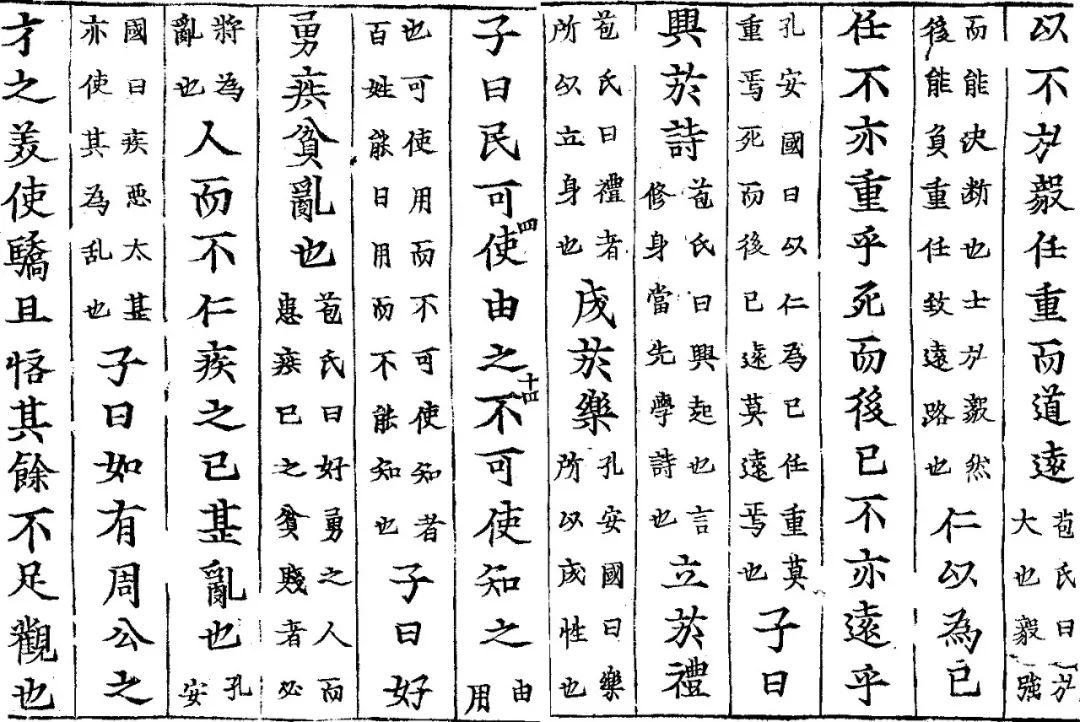 以不弘毅任重而道遠苞氏曰弘大也毅強
而能决断也士弘毅然後能負重任致遠路也仁以為己
任不亦重乎死而後已不亦遠乎
孔安國曰以仁為己任重莫重焉死而後已遠莫遠焉也子曰
興於詩苞氏曰興起也言修身當先學詩也立於禮
苞氏曰禮者所以立身也成於樂孔安國曰樂所以成性也
子曰民可使由之不可使知之由用
四
十四
也可使用而不可使知者百姓能日用而不能知也子曰好
勇疾貧亂也苞氏曰好勇之人而患疾己之貧賤者必
將為亂也人而不仁疾之已甚亂也孔安
國曰疾悪太甚亦使其為乱也子曰如有周公之
才之美使驕且悋其餘不足觀也